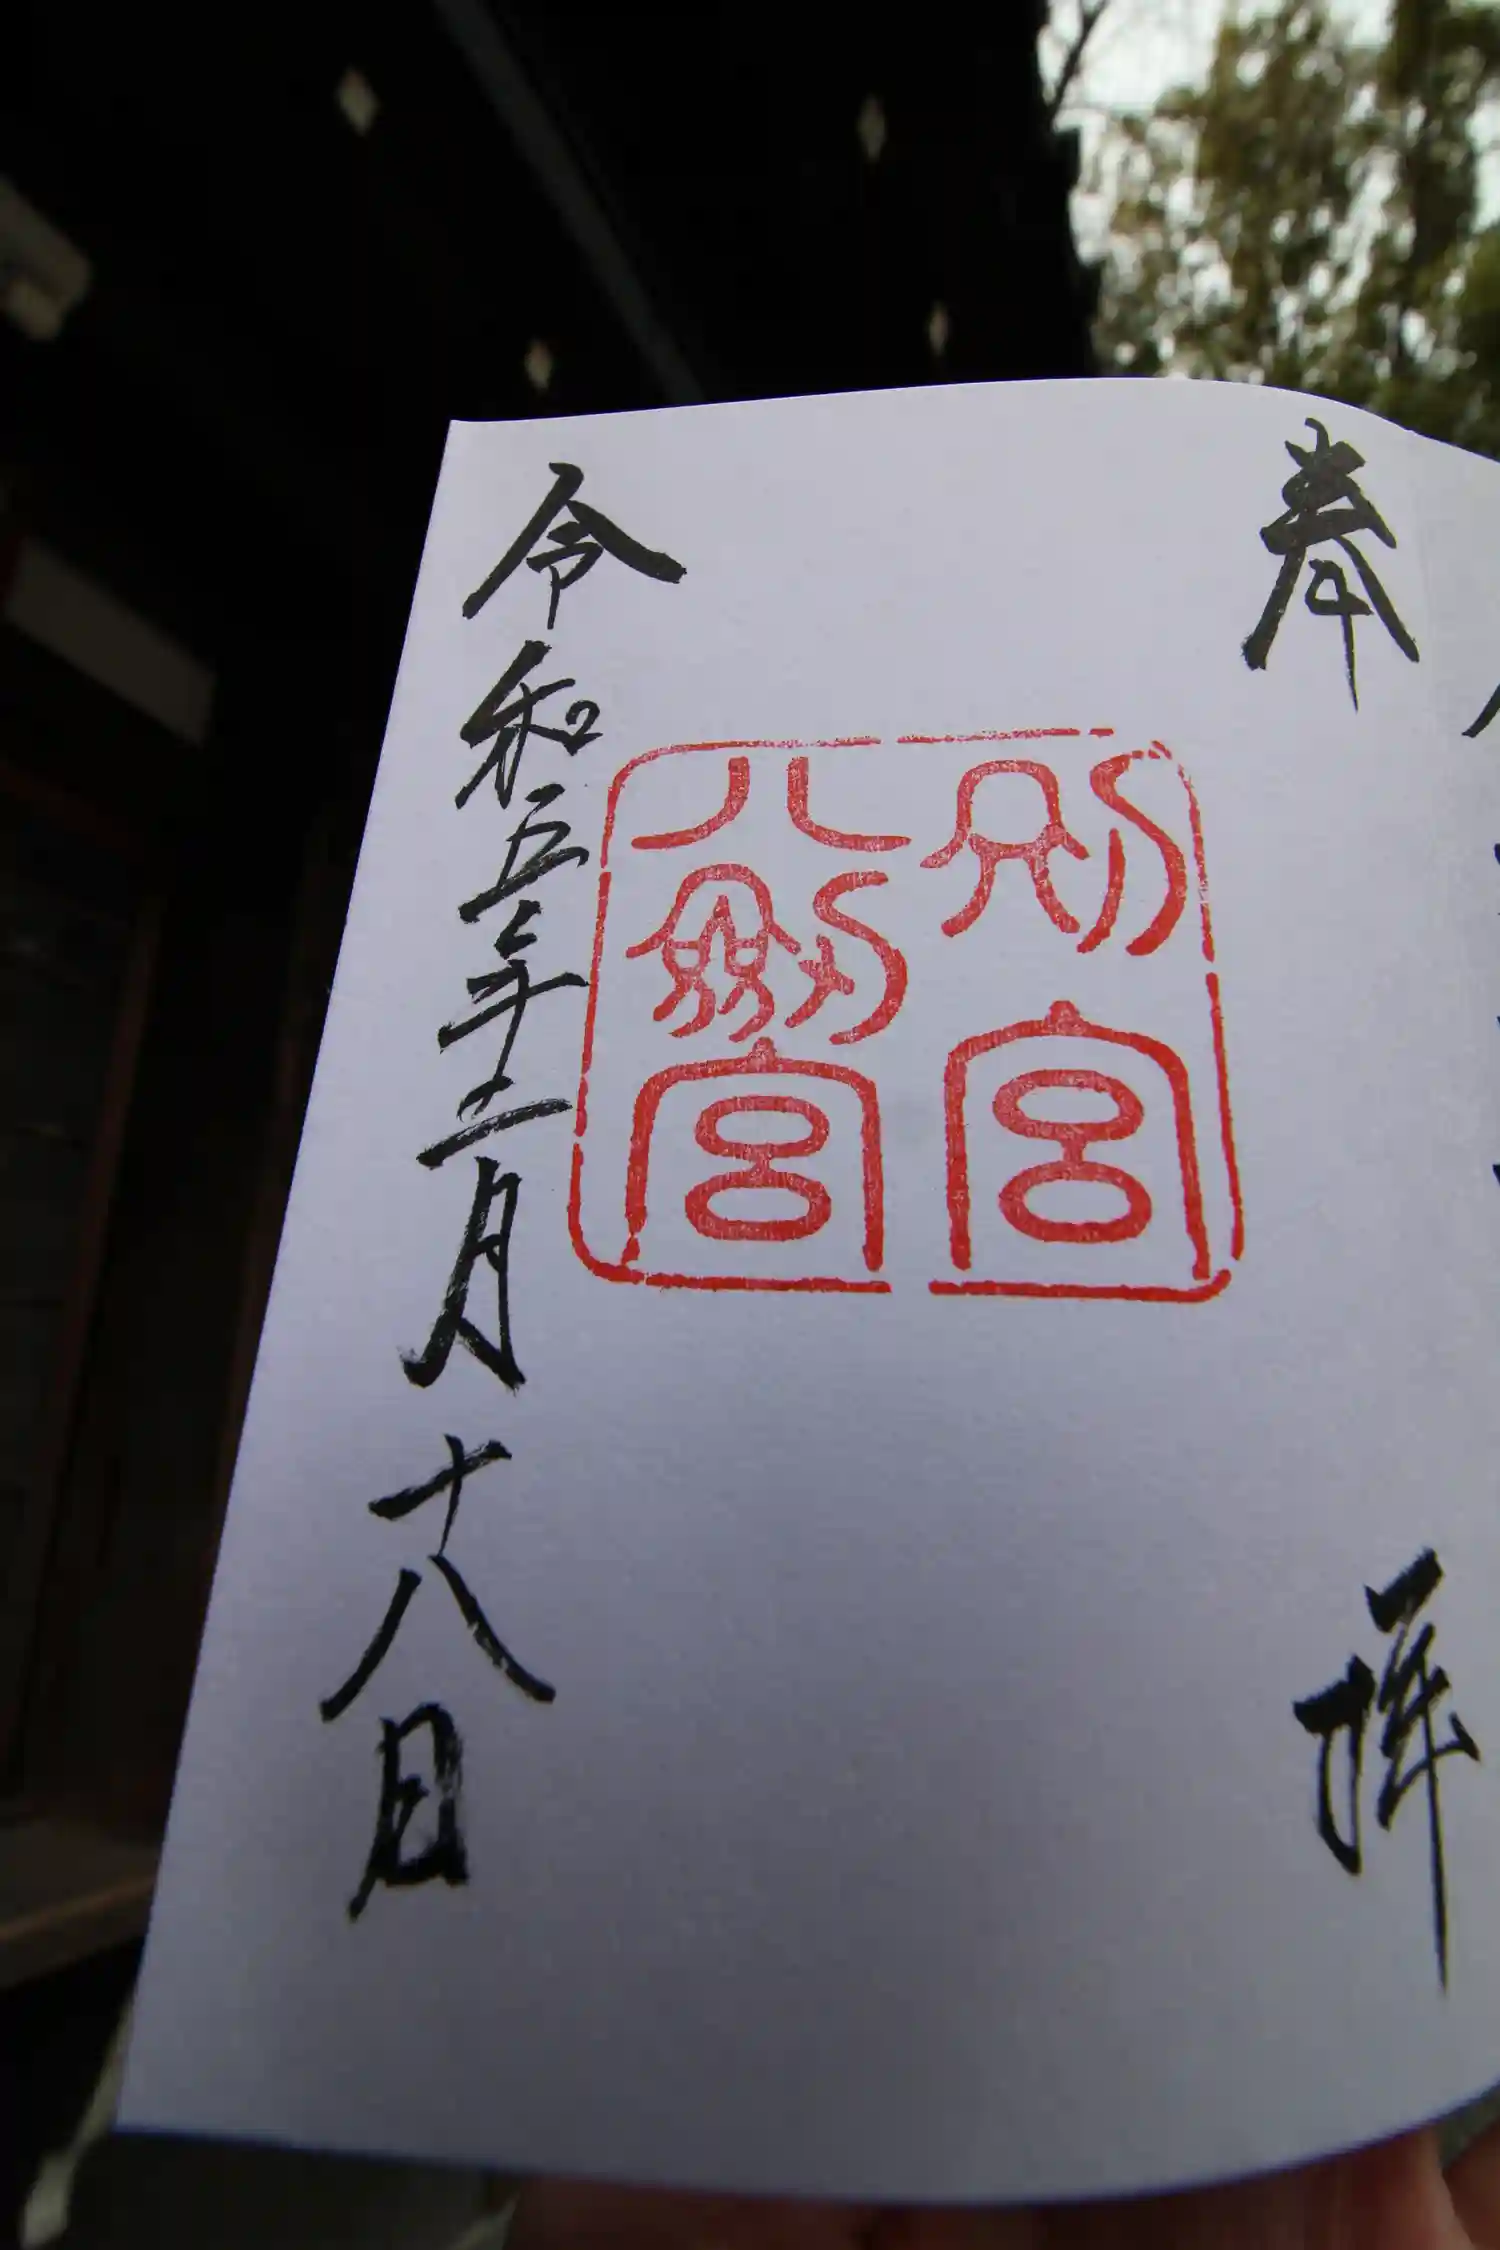 奉拝
別宮
八劔宮
令和五年二月十八日